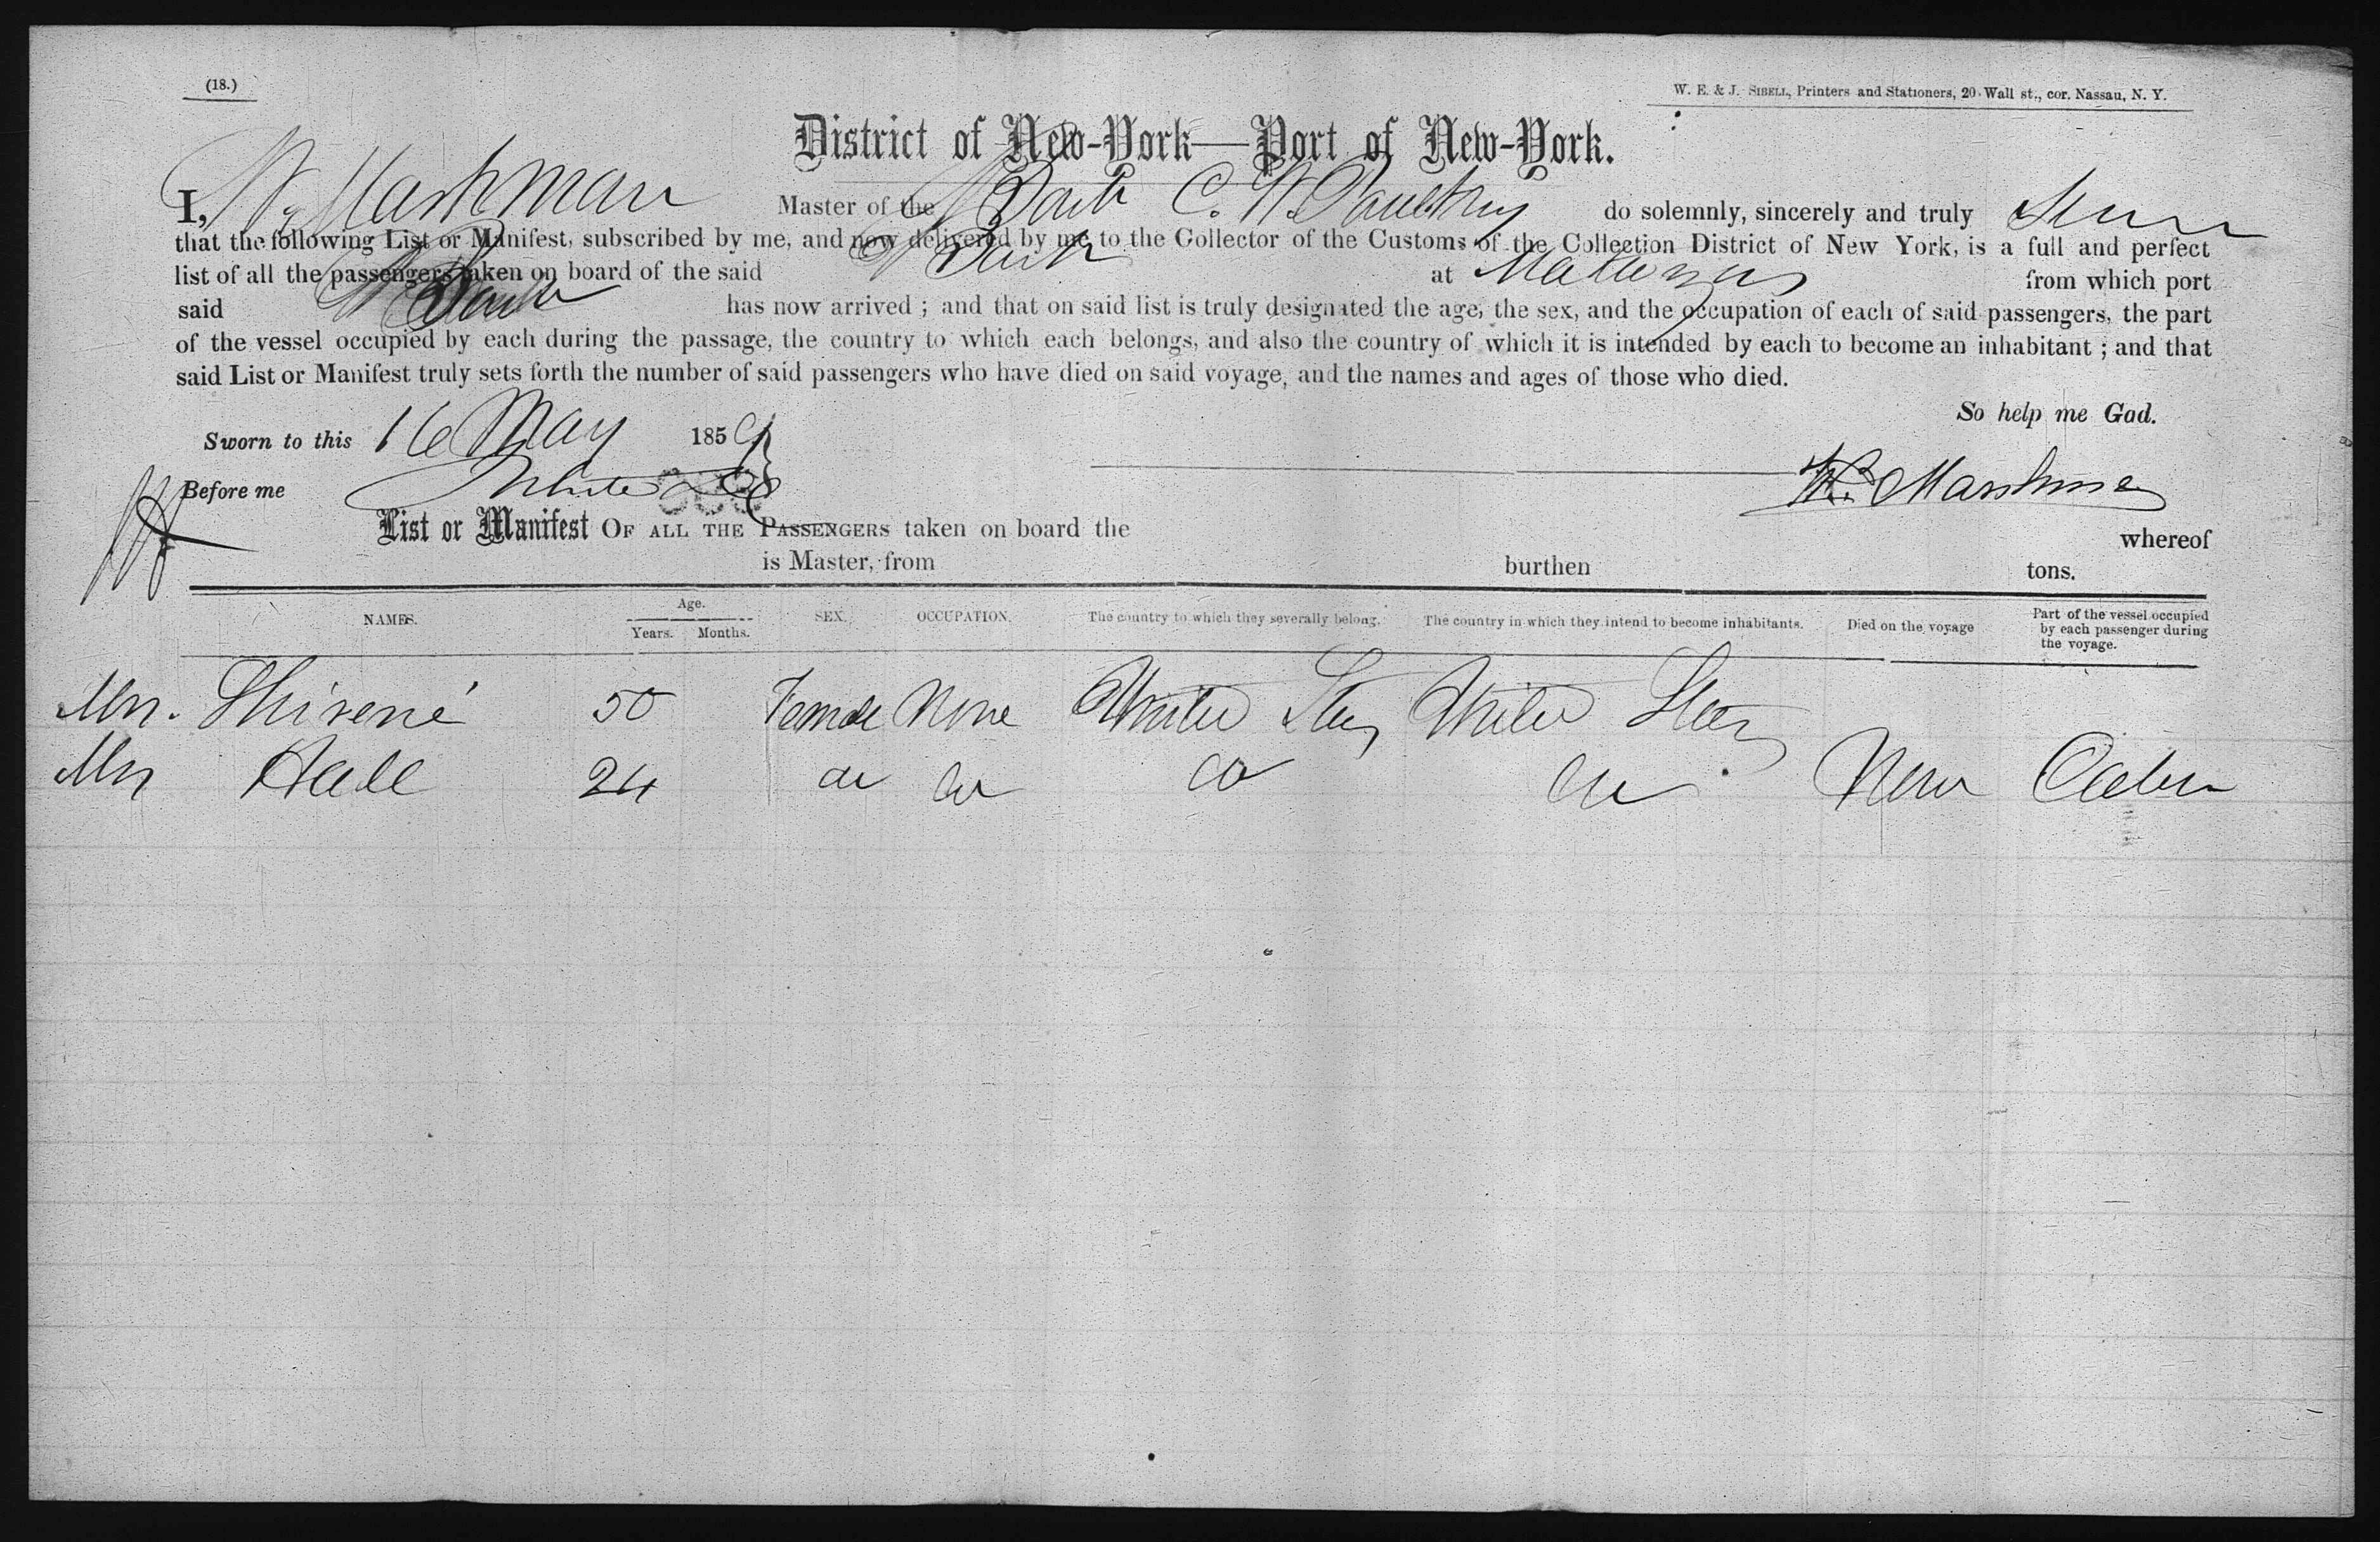 (18.)
W. E. & J. SIBELL, Printers and Stationers, 20 Wall st., cor. Nassau, N. Y.
District of New-York—Port of New-York.
I, Master of the Bark C. W. do solemnly, sincerely and truly
that the following List or Manifest, subscribed by me, and now delivered by me to the Collector of the Customs of the Collection District of New York, is a full and perfect
list of all the passengers taken on board of the said Bark at Matanzas from which port
said Bark has now arrived ; and that on said list is truly designated the age, the sex, and the occupation of each of said passengers, the part
of the vessel occupied by each during the passage, the country to which each belongs, and also the country of which it is intended by each to become an inhabitant ; and that
said List or Manifest truly sets forth the number of said passengers who have died on said voyage, and the names and ages of those who died.
So help me God.
Sworn to this 16 May 1859
Before me
List or Manifest OF ALL THE PASSENGERS taken on board the whereof
is Master, from burthen tons.
NAMES. Age. Years. Months. SEX. OCCUPATION. The country to which they severally belong. The country in which they intend to become inhabitants. Died on the voyage Part of the vessel occupied by each passenger during the voyage.
Mrs. 50 Female None United States United States
Mrs Hall 24 do do do do None Cabin